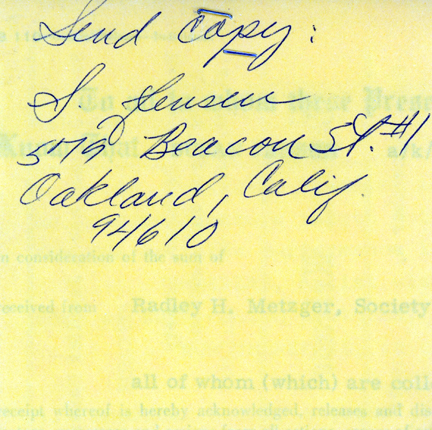 Send Copy:
S Jensen
579 Beacon St. #1
Oakland, Calif.
94610
To
these Prese
Know
a/k/
n consideration of the sum of
eceived from Radley H. Metzger, Society
all of whom (which) are colle
eceipt whereof is hereby acknowledged, releases and dis